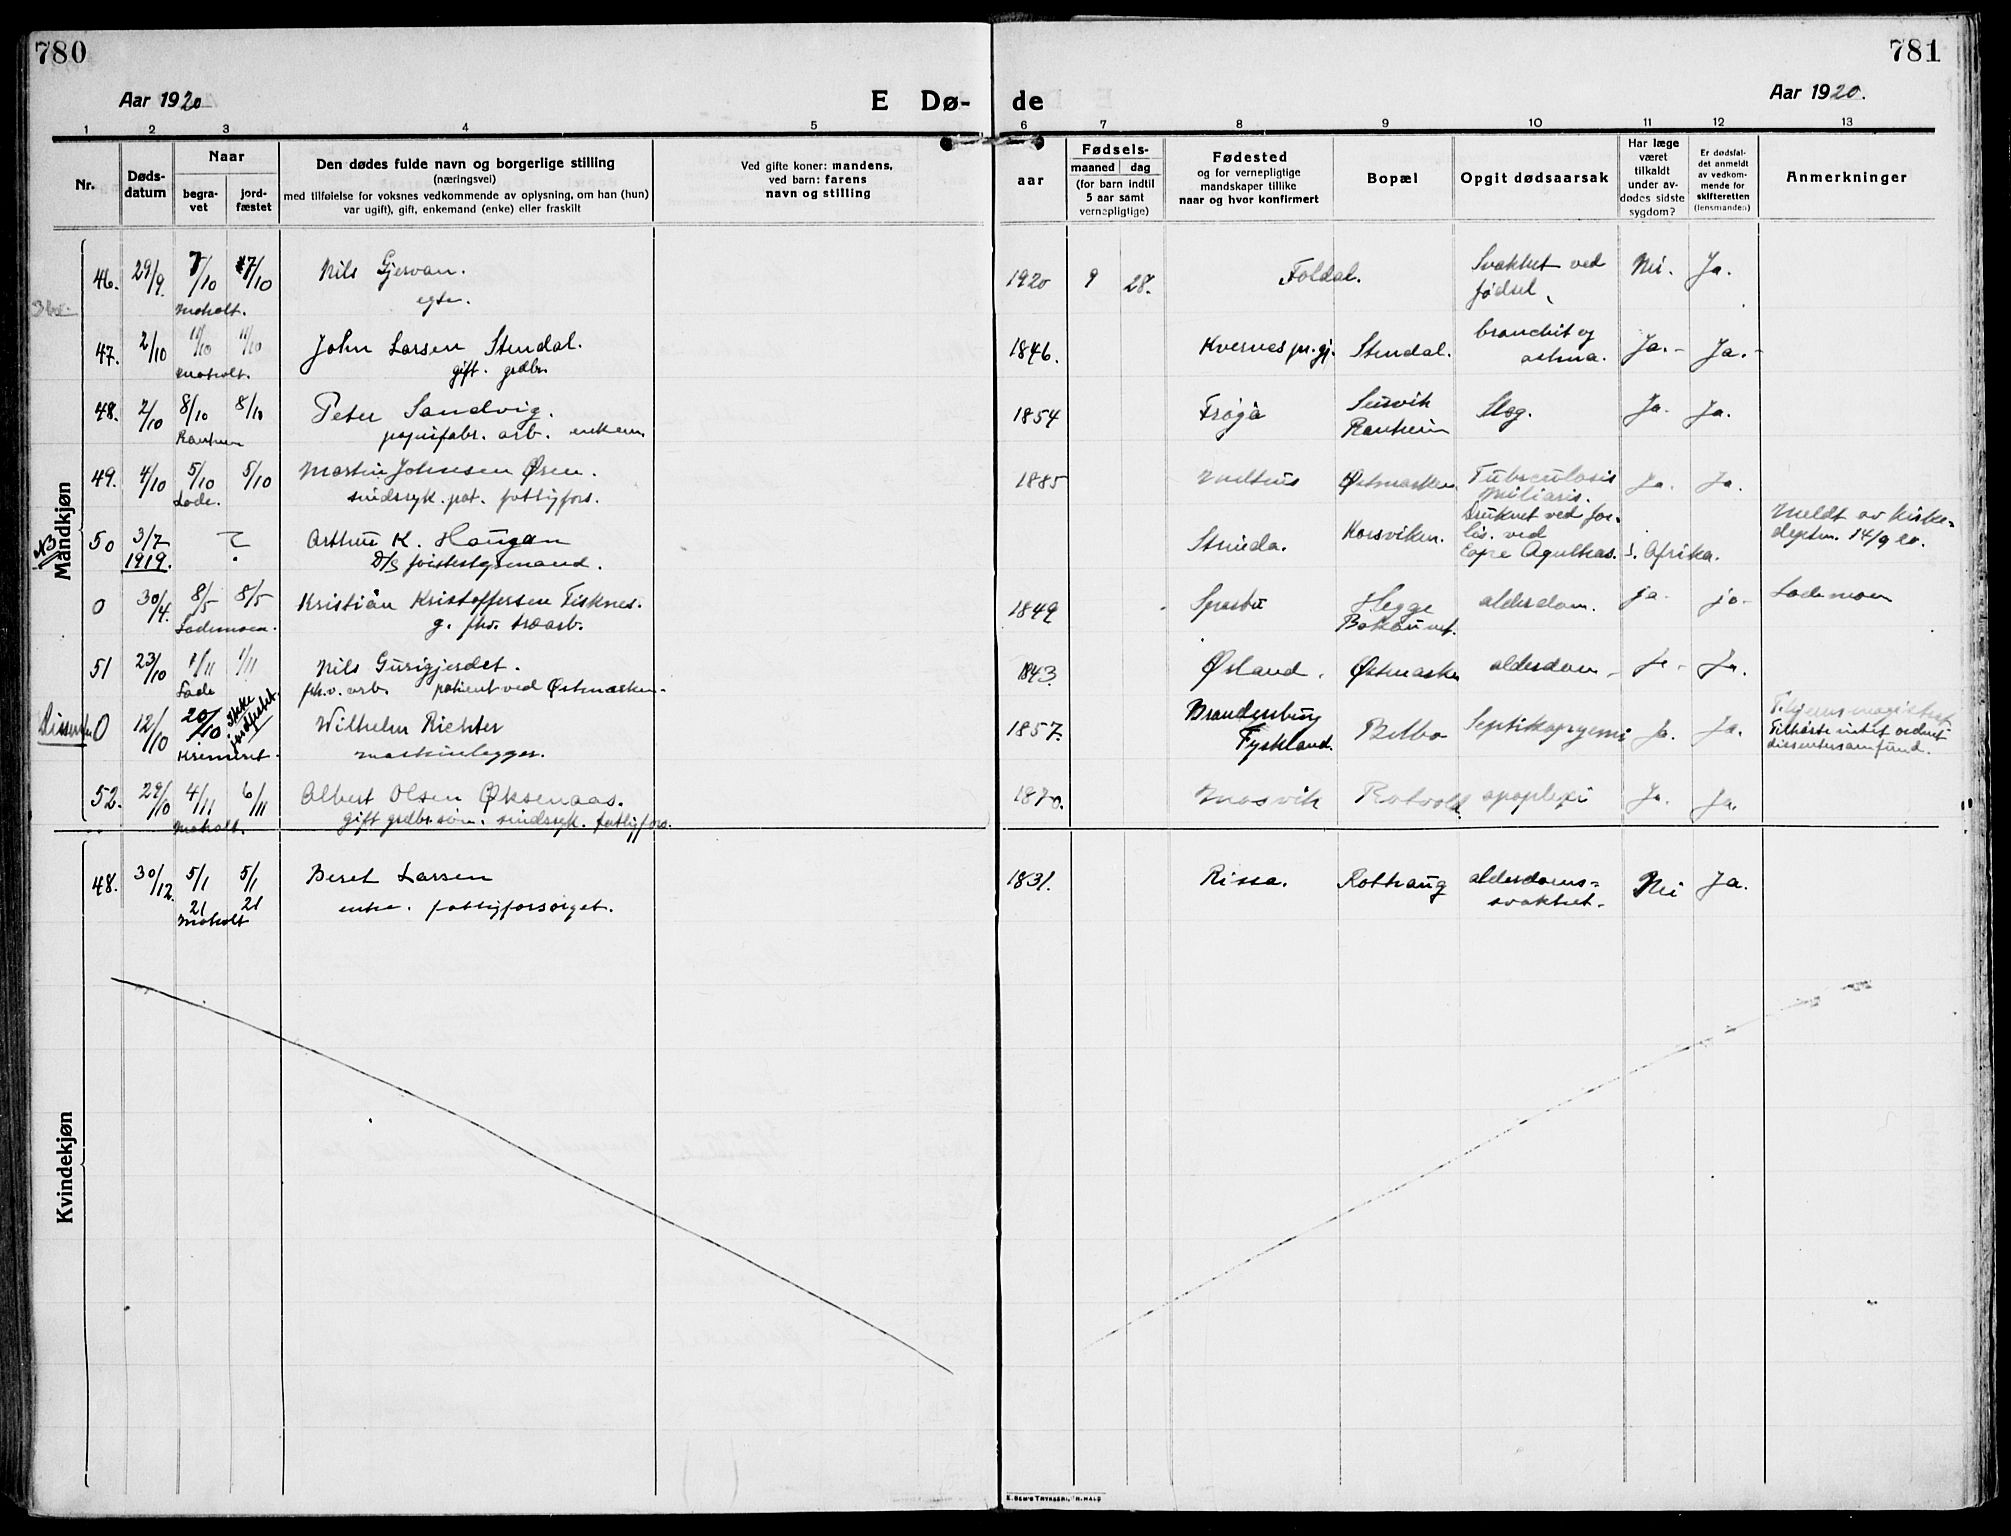 780
781
Aar 1920
E Dø-
de
Aar 1920.
1 2 3 4 5 6 7 8 9 10 11 12 13
Nr.
Døds-
datum
Naar
begra-
vet
jord-
fæstet
Den dødes fulde navn og borgerlige stilling
(næringsvei)
med tilføielse for voksnes vedkommende av oplysning, om han (hun)
var ugift), gift, enkemand (enke) eller fraskilt
Ved gifte koner: mandens,
ved barn: farens
navn og stilling
aar
Fødsels-
maaned dag
(for barn indtil
5 aar samt
vernepligtige)
Fødested
og for vernepligtige
mandskaper tillike
naar og hvor konfirmert
Bopæl
Opgit dødsaarsak
Har læge
været
tilkaldt
under av-
dødes sidste
sygdom?
Er dødsfal-
det anmeldt
av vedkom-
mende for
skifteretten
(lensmanden)
Anmerkninger
Mandkjøn
46. 29/9. 7/10 7/10 Nils Gjervan. 1920 9 28. Foldal. Svakhet ved Nei. Ja.
Moholt. egte. fødsel.
47. 2/10 11/10 11/10 John Larsen Stendal. 1846. Kvernes pr.gj. Stendal. bronchit og Ja. Ja.
Moholt. gift. grdbr. astma.
48. 2/10 8/10 8/10 Peter Sandvig. 1854 Frøya Ja. Ja.
Ranheim papirfabr. arb. enkem. Ranheim
49. 4/10 5/10 5/10 Martin Johnsen Øren. 1885 Østmarken Tuberculosis Ja. Ja.
Lade. sindssyk. pat. fattigfors. Miliaris.
NB 50 3/7 ? Arthur K. Haugan Strinda. Korsviken. Druknet ved for- Meldt av Kirke-
1919. D/S lis. ved deptm. 14/9 20.
Cape Agulhas. S. Afrika.
0 30/4. 8/5 8/5 Kristian Kristoffersen Fisknes. 1849 Sparbu Hegge alderdom. ja. ja. Lademoen
Lademoen. g. fhv. træarb. Bakaunet.
51 23/10 1/11 1/11 Nils Gurigjerdet. 1843. Ørland. Østmarken alderdom Ja. Ja.
Lade fhv. arb. patient ved Østmarken.
Dissenter 0 12/10 20/10 Ikke jordfæstet. Wilhelm Richter 1857. Brandenburg Belbo Septikopyemi Ja. Ja.
Kremeret. maskinlegger. Tyskland. Tilhørte intet ordnet
dissentersamfund.
52. 29/10 4/11 6/11 Albert Olsen Øksenaas. 1870. Mosvik Rotvold apoplexi Ja. Ja.
Moholt. gift grdbr.søn. sindssyk. fattigfors.
Kvindekjøn
48. 30/12. 5/1 21 5/1 21 Beret Larsen 1831. Rissa. Rothaug alderdoms- Nei Ja.
Moholt enke. fattigforsørget. svakhet.